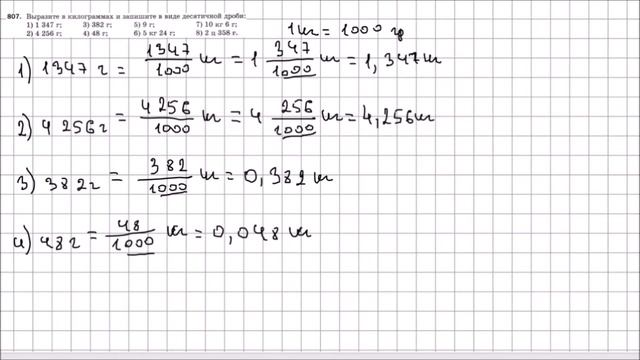 807. Выразите в килограммах и запишите в виде десятичной дроби:
1) 1 347 г; 3) 382 г; 5) 9 г; 7) 10 кг 6 г;
2) 4 256 г; 4) 48 г; 6) 5 кг 24 г; 8) 2 ц 358 г.
1кг = 1000 гр
1) 1347 г = 1347/1000 кг = 1 347/1000 кг = 1,347кг
2) 4 256г = 4 256/1000 кг = 4 256/1000 кг = 4,256кг
3) 382г = 382/1000 кг = 0,382 кг
4) 48г = 48/1000 кг = 0,048 кг